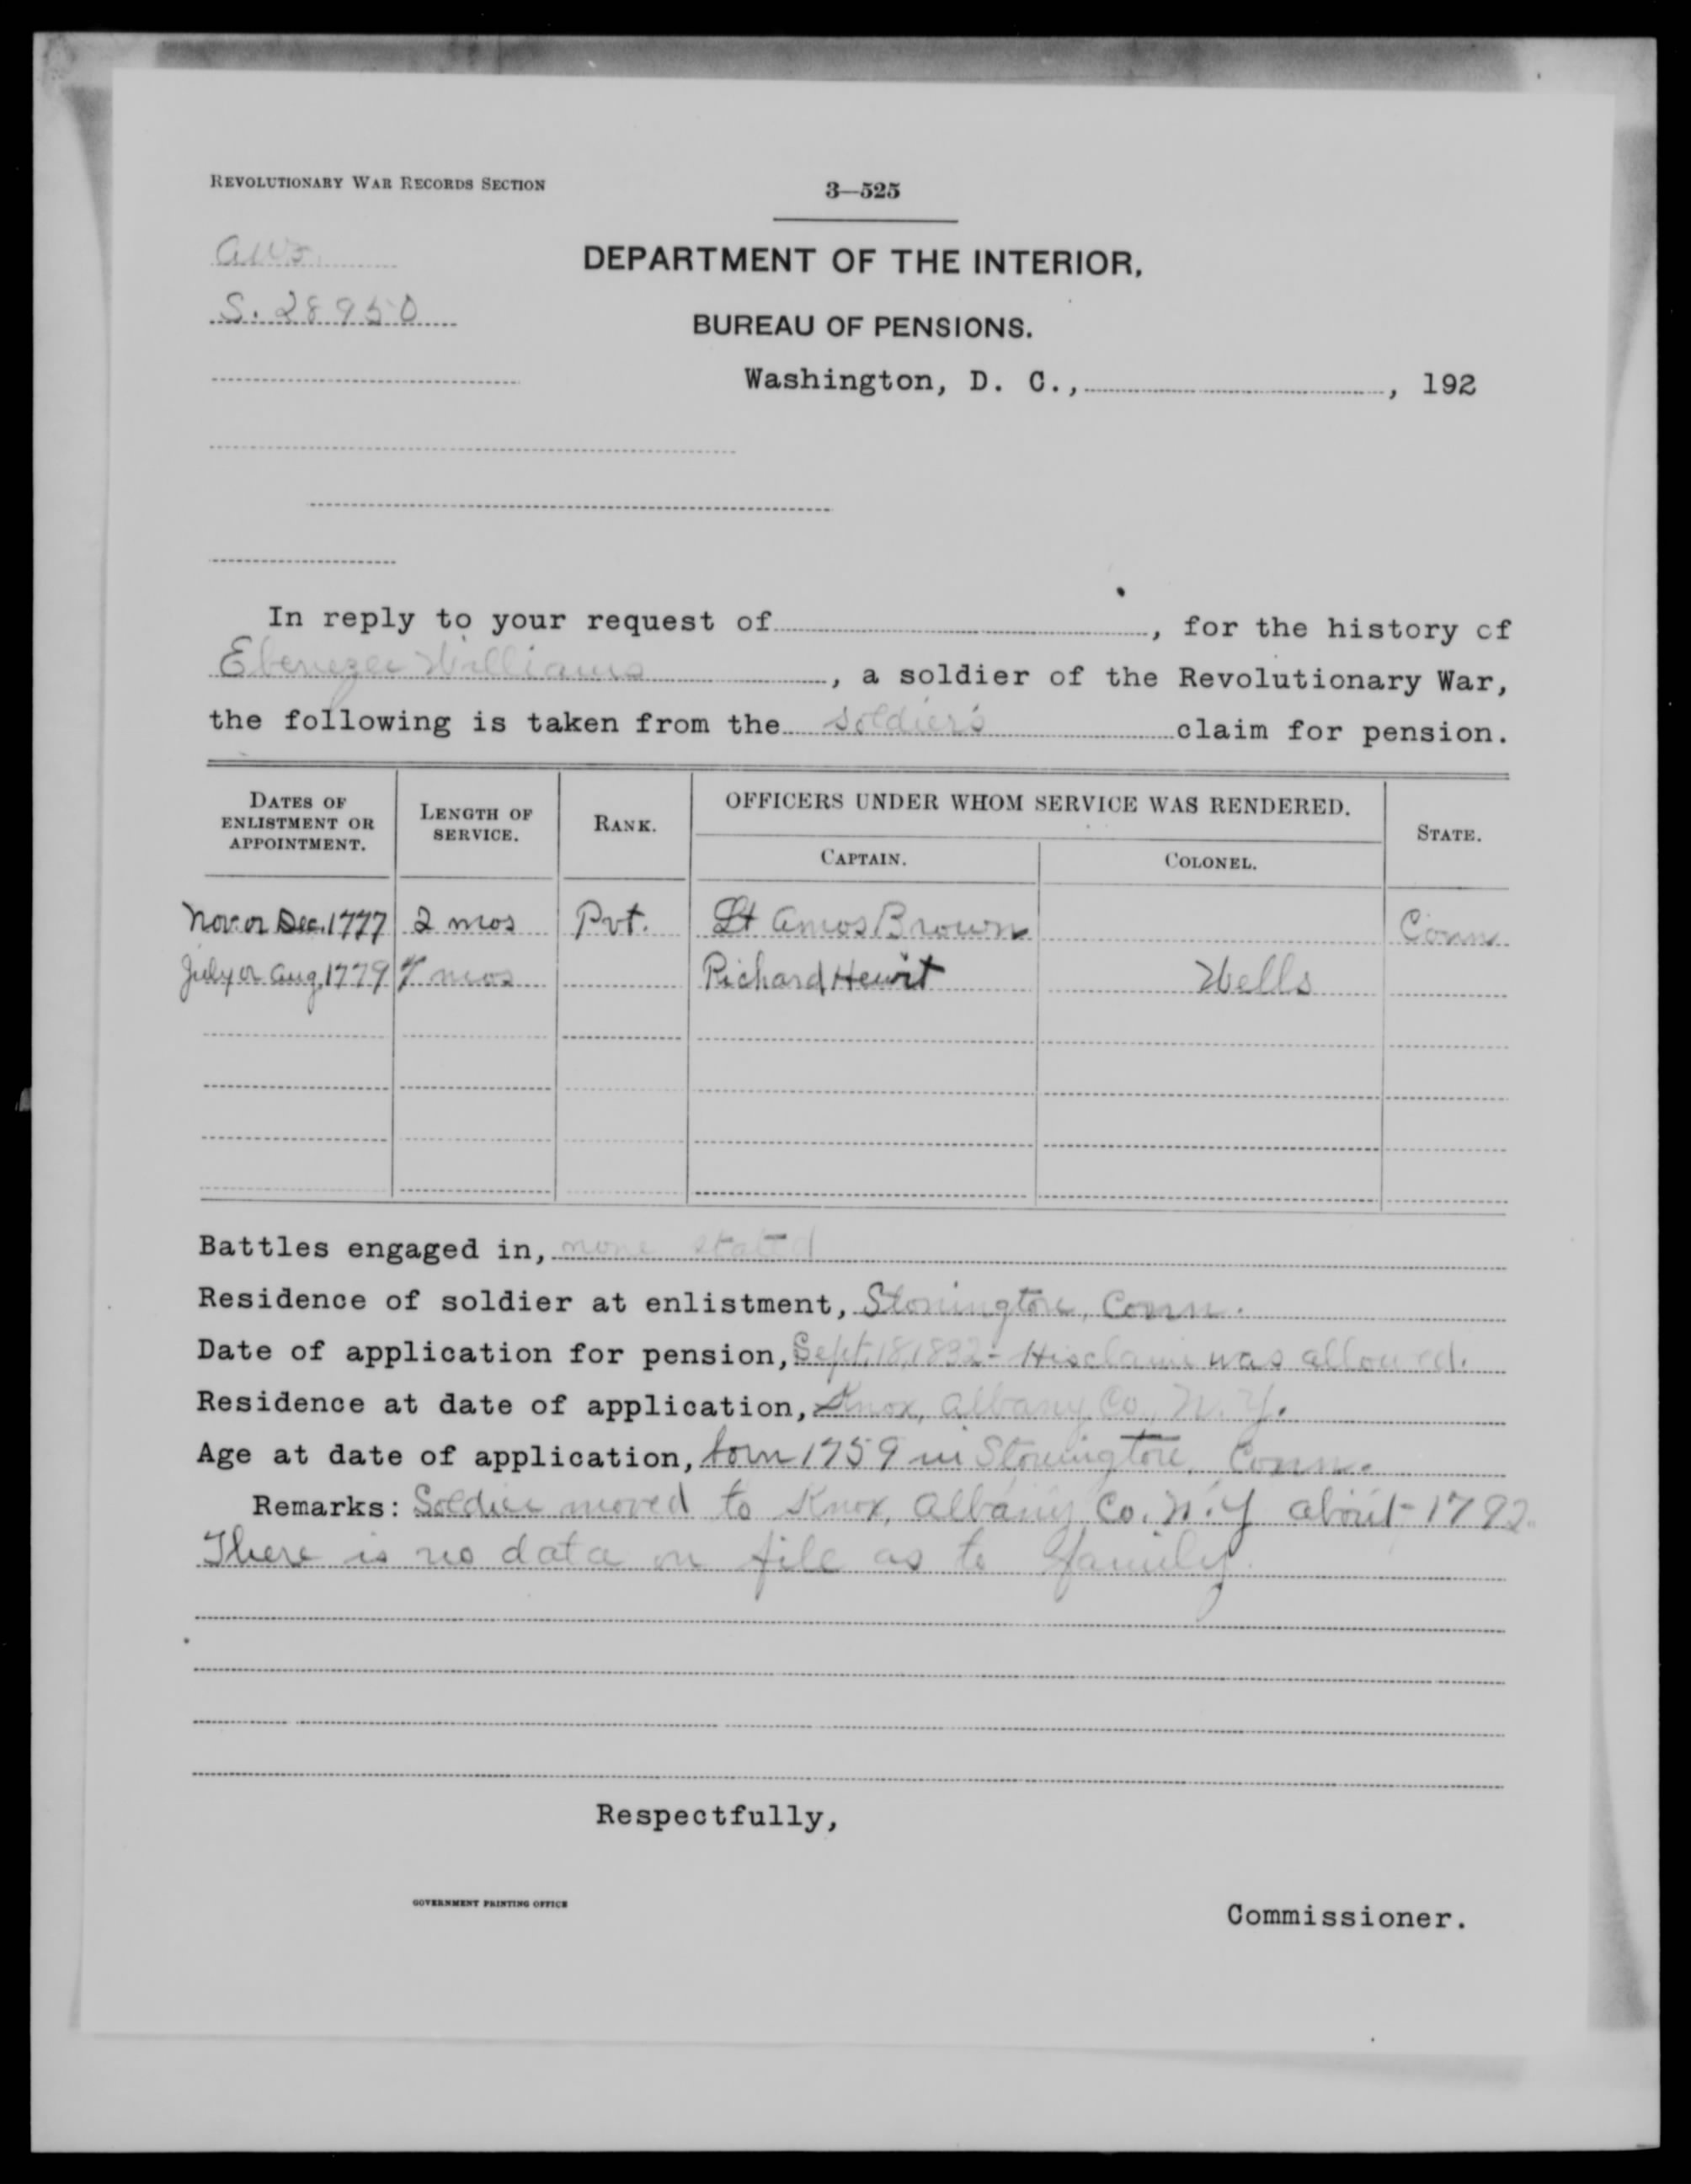 REVOLUTIONARY WAR RECORDS SECTION
3—525
S. 28950
DEPARTMENT OF THE INTERIOR,
BUREAU OF PENSIONS.
Washington, D. C., , 192
In reply to your request of , for the history of
Ebenezer Williams , a soldier of the Revolutionary War,
the following is taken from the soldier's claim for pension.
DATES OF ENLISTMENT OR APPOINTMENT. LENGTH OF SERVICE. RANK. OFFICERS UNDER WHOM SERVICE WAS RENDERED. STATE.
CAPTAIN. COLONEL.
Nov. or Dec. 1777 2 mos Pvt. Lt Amos Brown Conn
July or Aug. 1779 mos Richard Hewit Wells
Battles engaged in, none stated
Residence of soldier at enlistment, Stonington, Conn.
Date of application for pension, Sept. 18, 1832 - His claim was allowed.
Residence at date of application, Knox, Albany Co., N.Y.
Age at date of application, born 1759 in Stonington, Conn.
Remarks: Soldier moved to Knox, Albany Co. N.Y about 1792.
There is no data on file as to family.
Respectfully,
GOVERNMENT PRINTING OFFICE
Commissioner.